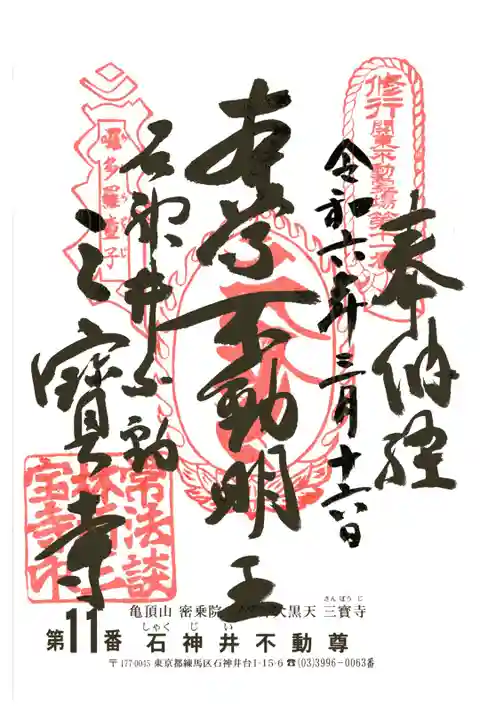 奉納経
令和六年三月十六日
本尊不動明王
石神井不動
三寳寺
修行
関東不動霊場第十一番
多羅童子
常法談
林所三
宝寺印
亀頂山 密乗院 大黒天 三寳寺
さんぽうじ
第11番 石神井不動尊
しゃくじい
〒177-0045 東京都練馬区石神井台1-15-6 ☎(03)3996-0063番